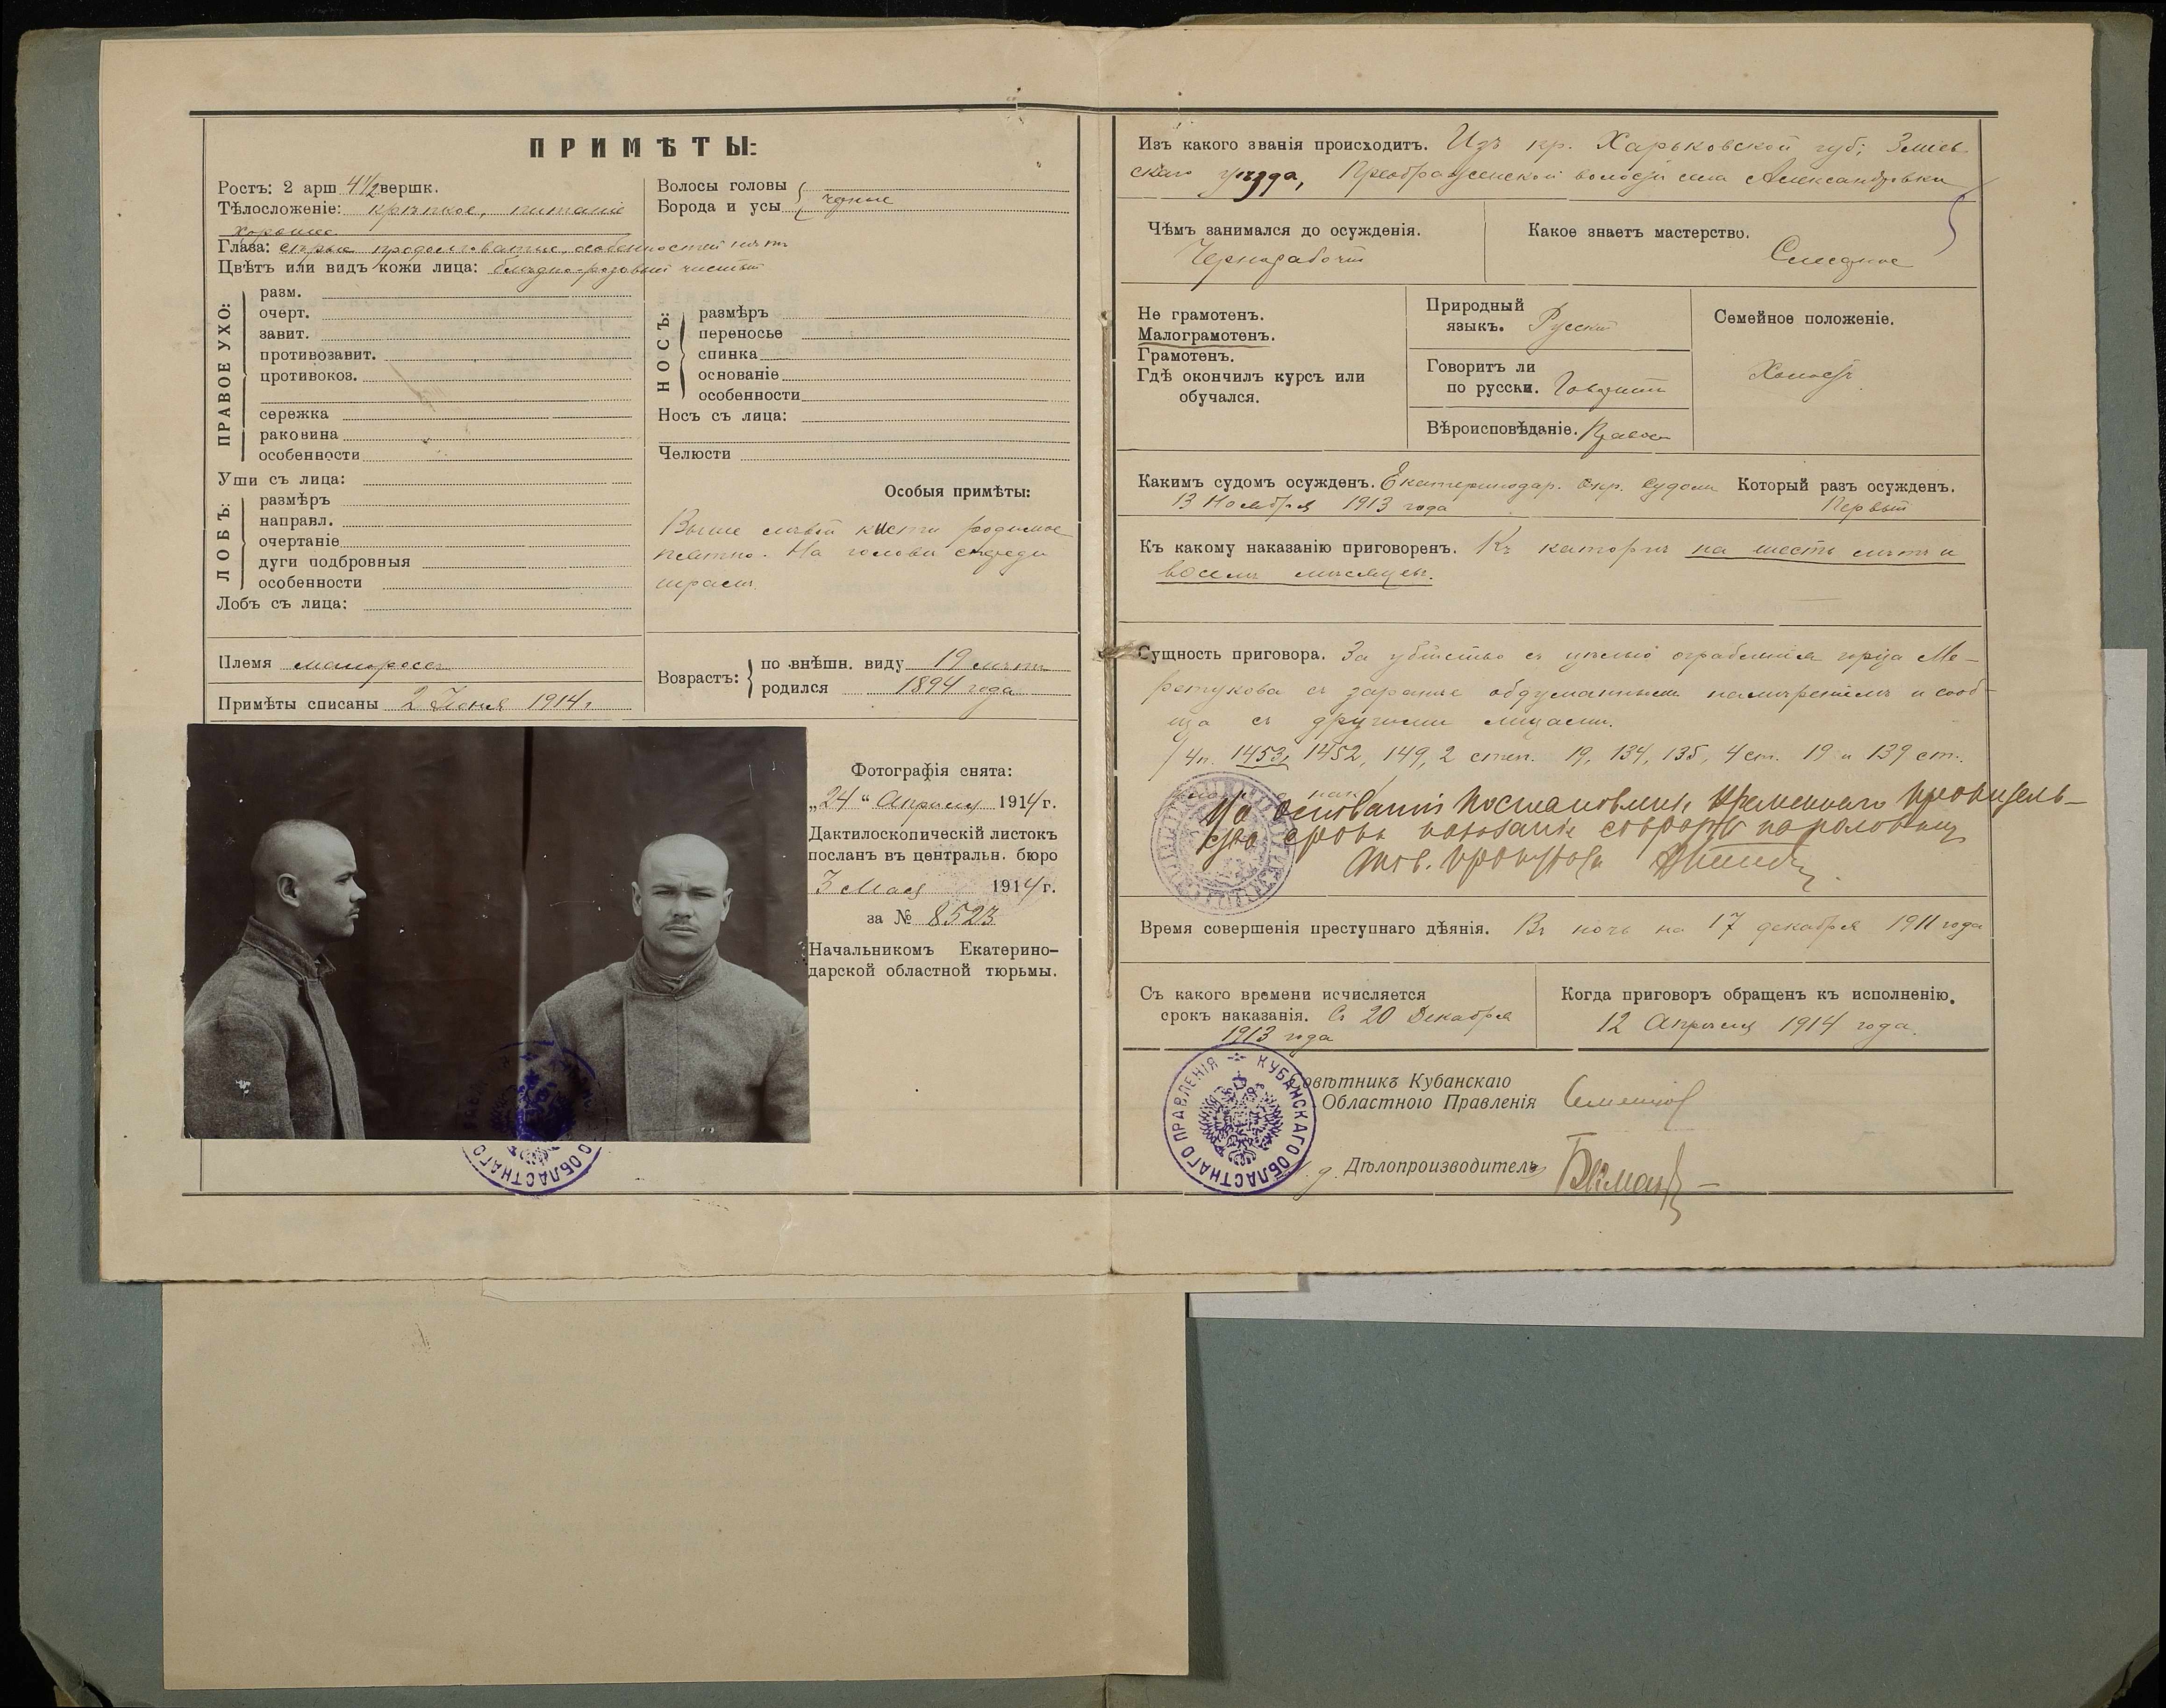 ПРИМѢТЫ:
Ростъ: 2 арш 4 1/2 вершк.
Тѣлосложеніе: крѣпкое, питаніе
хорошее
Глаза: сѣрые продолговатые, особенностей нѣтъ
Цвѣтъ или видъ кожи лица: блѣдно-розовый чистый
Волосы головы
Борода и усы
черные
ПРАВОЕ УХО:
разм.
очерт.
завит.
противозавит.
противокоз.
сережка
раковина
особенности
Уши съ лица:
ЛОБЪ:
размѣръ
направл.
очертаніе
дуги подбровныя
особенности
Лобъ съ лица:
НОСЪ:
размѣръ
переносье
спинка
основаніе
особенности
Носъ съ лица:
Челюсти
Особыя примѣты:
Выше лѣвой кисти родимое
пятно. На голове спереди
шрам.
Племя малороссъ
Примѣты списаны 2 Іюня 1914 г.
Возрастъ:
по внѣшн. виду 19 лѣтъ
родился 1894 года
Фотографія снята:
„24“ Апрѣля 1914 г.
Дактилоскопическій листокъ
посланъ въ центральн. бюро
3 Мая 1914 г.
за № 8523
Начальникомъ Екатерино-
дарской областной тюрьмы.
Изъ какого званія происходитъ. Изъ кр. Харьковской губ; Зміев
скаго уѣзда, Преображенской волости села Александровки
Чѣмъ занимался до осужденія.
Чернорабочій
Какое знаетъ мастерство.
Не грамотенъ.
Малограмотенъ.
Грамотенъ.
Гдѣ окончилъ курсъ или
обучался.
Природный
языкъ. Русскій
Говоритъ ли
по русски. Говоритъ
Вѣроисповѣданіе. Правос
Семейное положеніе.
Холостъ
Какимъ судомъ осужденъ. Екатеринодар. Окр. Судомъ
13 Ноября 1913 года
Который разъ осужденъ.
Первый
Къ какому наказанію приговоренъ. Къ каторгѣ на шесть лѣтъ и
восемь мѣсяцевъ.
Сущность приговора. За убійство съ цѣлью ограбленія горца Ме-
ретукова съ заранѣе обдуманнымъ намѣреніемъ и сооб-
ща съ другими лицами.
/4 п. 1453, 1452, 149, 2 степ. 19, 134, 135, 4 ст. 19 и 139 ст.
На основаніи постановлен. Временнаго Правитель-
ства срокъ наказанія сокращ на половину
Тов. Прокурора
Время совершенія преступнаго дѣянія. Въ ночь на 17 декабря 1911 года
Съ какого времени исчисляется
срокъ наказанія. Съ 20 Декабря
1913 года
Когда приговоръ обращенъ къ исполненію.
12 Апрѣля 1914 года.
Совѣтникъ Кубанскаго
Областного Правленія
И. д. Дѣлопроизводитель
КУБАНСКАГО ОБЛАСТНАГО ПРАВЛЕНІЯ